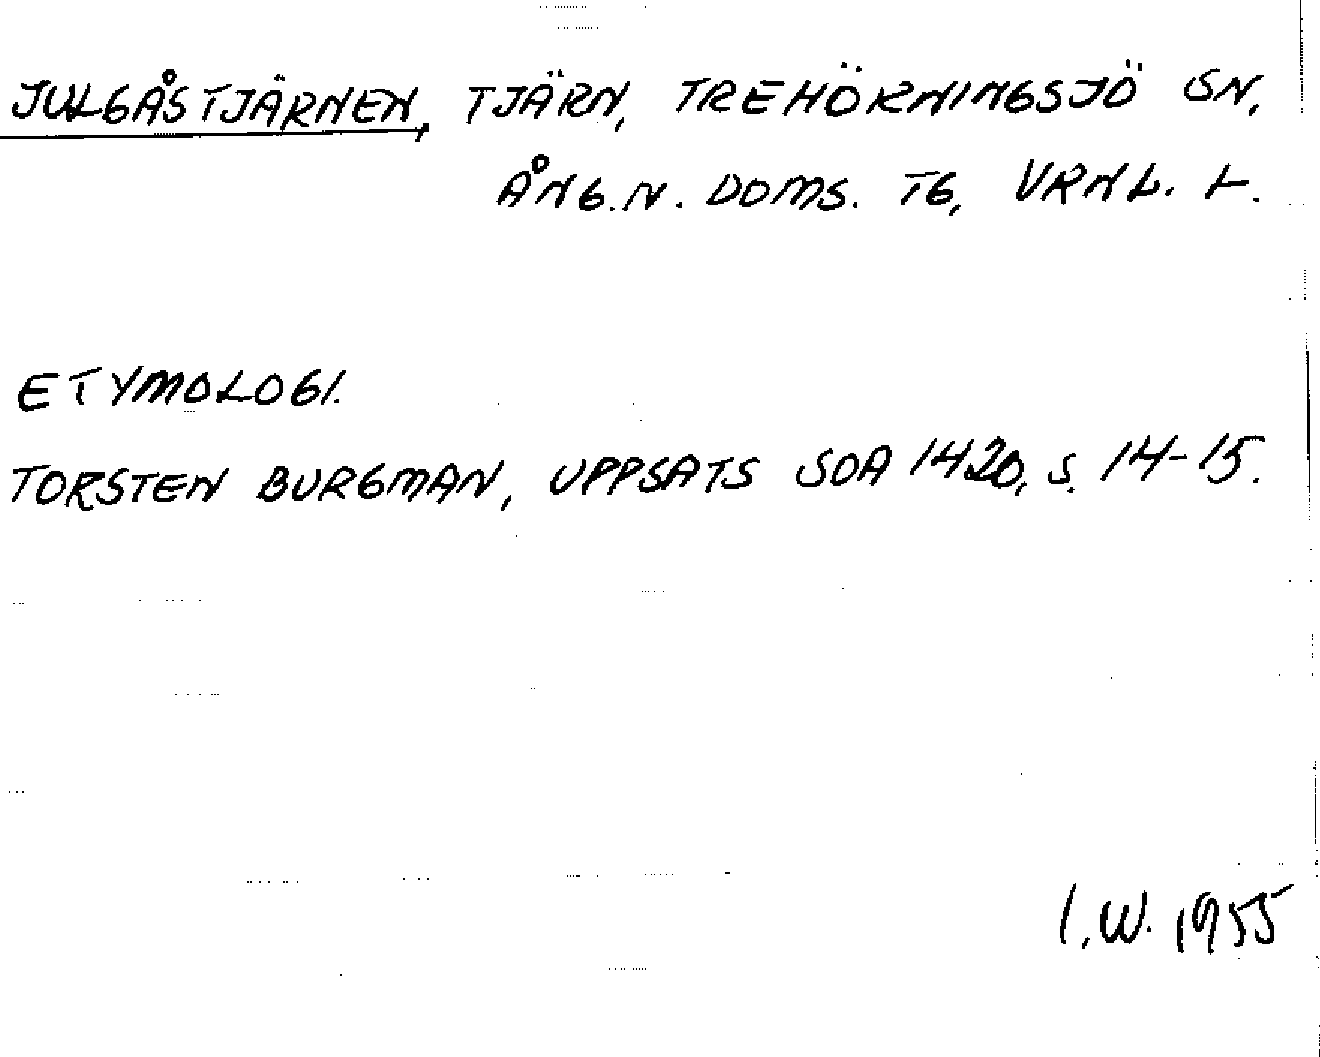 JULGÅSTJÄRNEN, TJÄRN, TREHÖRNINGSJÖ SN,
ÅNG.N. DOMS. TG, VRNL. L.
ETYMOLOGI.
TORSTEN BURGMAN, UPPSATS SOA 1420, S. 14-15.
I.W. 1955